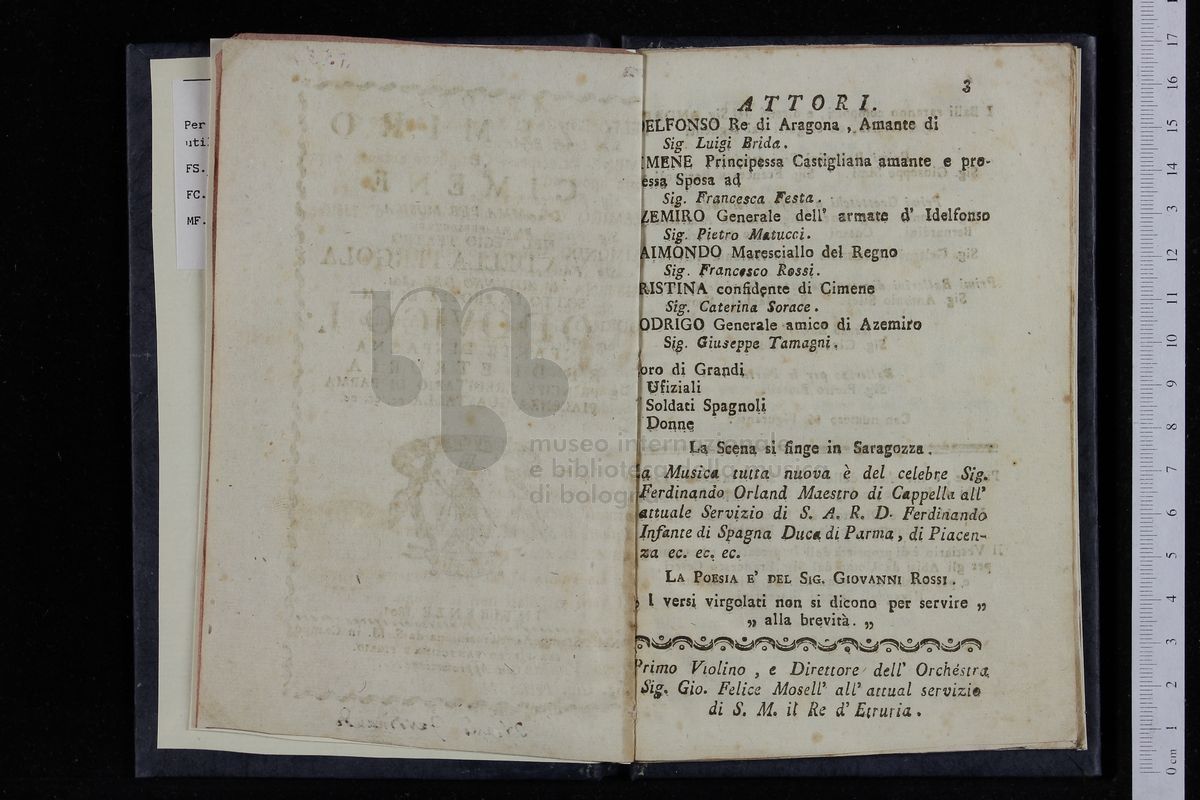 Per
util
FS.
FC.
MF.
3
ATTORI.
DELFONSO Re di Aragona , Amante di
Sig. Luigi Brida.
IMENE Principessa Castigliana amante e pro-
essa Sposa ad
Sig. Francesca Festa.
ZEMIRO Generale dell' armate d' Idelfonso
Sig. Pietro Matucci.
AIMONDO Maresciallo del Regno
Sig. Francesco Rossi.
RISTINA confidente di Cimene
Sig. Caterina Sorace.
ODRIGO Generale amico di Azemiro
Sig. Giuseppe Tamagni.
oro di Grandi
Ufiziali
Soldati Spagnoli
Donne
La Scena si finge in Saragozza.
a Musica tutta nuova è del celebre Sig.
Ferdinando Orland Maestro di Cappella all'
attuale Servizio di S. A. R. D. Ferdinando
Infante di Spagna Duca di Parma, di Piacen-
za ec. ec. ec.
LA POESIA E' DEL SIG. GIOVANNI ROSSI.
„ I versi virgolati non si dicono per servire „
„ alla brevità. „
Primo Violino, e Direttore dell' Orchestra
Sig. Gio. Felice Mosell' all' attual servizio
di S. M. il Re d' Etruria.
museo internazionale
e biblioteca della musica
di bologna
0 cm 1 2 3 4 5 6 7 8 9 10 11 12 13 14 15 16 17